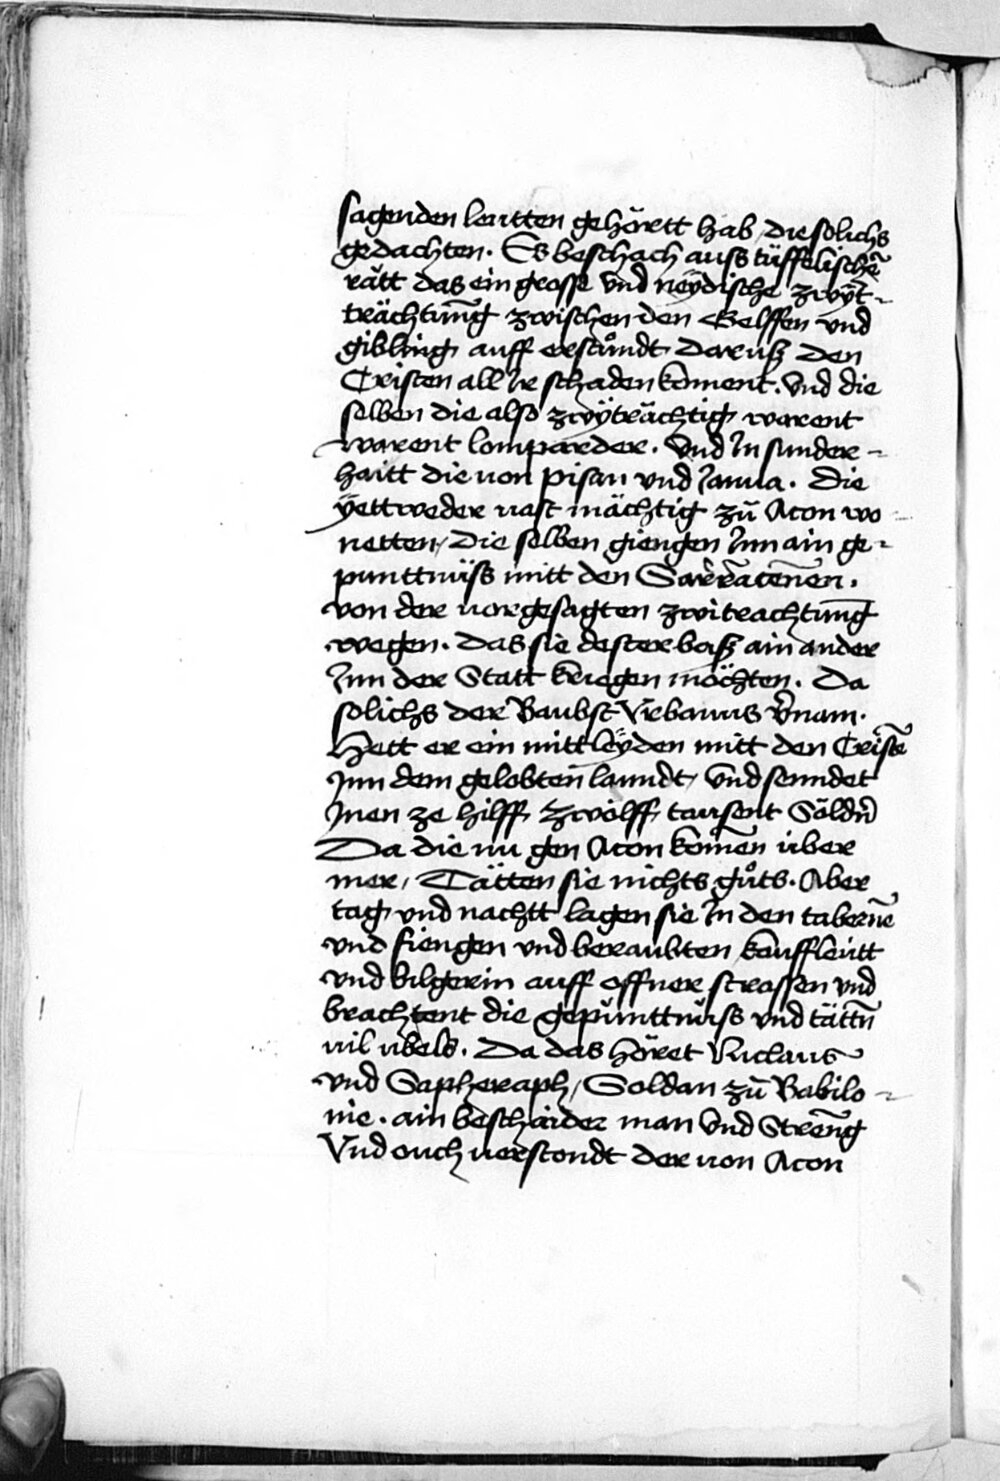 sagenden leutten gehörtt hab / die solichs
gedachten. Es beschach auss tüffelischē
rätt das ein grosse vnd neÿdische zwÿt-
trächtūng zwischen den Gelffen vnd
gibling auff erstůndt Darusz den
Cristen all Ir schaden koment. Vnd die
selben die also zwÿträchtig warent
warent lomparder. Vnd In sunder-
haitt die uon pisan vnd Ianua. Die
ÿettweder uast mächtig zū Acon wo-
netten / Die selben giengen Inn ain ge-
punttnüss mitt den Sarracenen.
von der uorgesagten zwitrachtūng
wegen. Das sie dester basz ain ander
Inn der Statt kriegen möchten. Da
solichs der Baubst Vrbanus v̄nam.
Hett er ein mittleÿden mitt den Cristē
Inn dem gelobten lanndt / vnd senndet
Inen ze hilff zwölff tausent Söldn̄
Da die nu gen Acon komen über
mer / Tätten sie nichts gůts. Aber
tag vnd nachtt lagen sie In den tabernē
vnd fiengen vnd beraubten kauffleütt
vnd bilgerin auff offner strassen vnd
brachtent die gepünttnüss vnd tättn̄
uil übels. Da das höret
vnd Sapheraph / Soldan zū Babilo-
nie. ain beschaider man vnd Strēng
Vnd ouch uerstondt der uon Acon